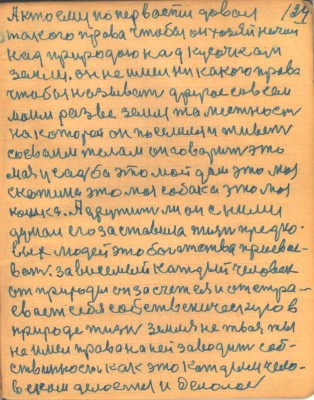 124
А кто ему по первости довал
такого права чтобы он хозяйничил
над природою над кусочкам
земли. он не имел никакого права
чтобы называть другое совсем
моим разве земля та местность
на которой он поселился и живет
своеим телам он говорит это
мая усадьба это мой дом это моя
скотина это моя собака это моя
кошка. А думал ли он с ними
думал его заставила жизнь предко-
вых людей это богатства присваи-
вать. за всей земли каждый человек
от природы он засчется и отстра-
евает себя собственическую в
природе жизнь земля не твая ты
не имел права на ней заводить соб-
ственность как это каждым чело-
веком делоется и делолос